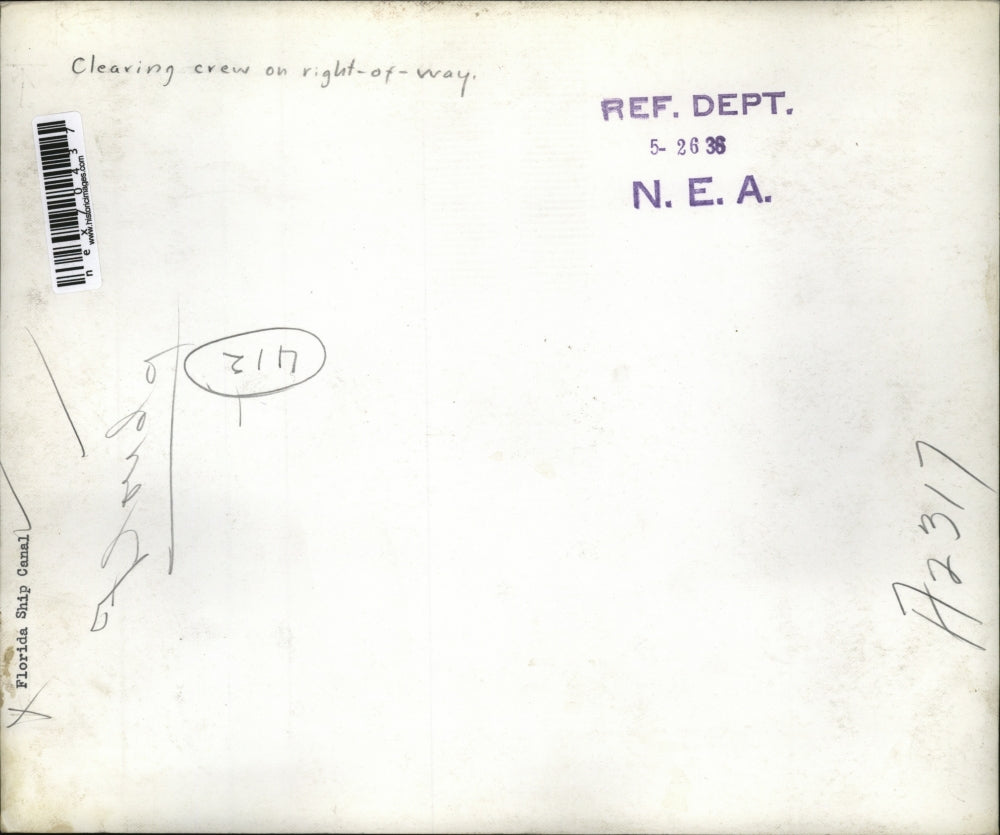 Clearing crew on right-of-way.
REF. DEPT.
5- 26 36
N. E. A.
nex70437
www.historicimages.com
412
Florida Ship Canal
A2317